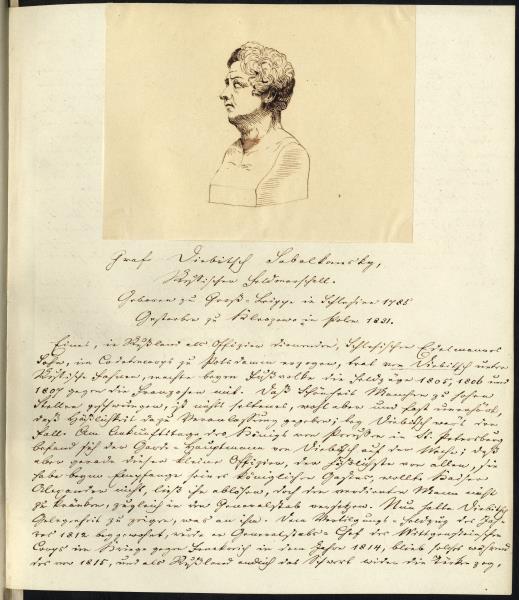 Graf Diebitsch Sabalkansky,
Russischer Feldmarschall.
Geboren zu Groß-Leippe in Schlesien 1785
Gestorben zu Kleczewo in Polen 1831.
Eines, in Rußland als Offizier dienenden, Schlesischen Edelmannes
Sohn, im Cadettencorps zu Potsdam erzogen, trat von Diebitsch unter
Russische Fahnen, machte beym Fußvolke die Feldzüge 1805, 1806 und
1807 gegen die Franzosen mit. Daß Schönheit Manchen zu hohen
Stellen geschwungen, ist nicht seltenes, wohl aber und fast unerhört,
daß Häßlichkeit dazu Veranlassung gegeben; bey Diebitsch war's der
Fall. Am Ankunftstage des Königs von Preußen in St. Petersburg
befand sich der Garde-Hauptmann von Diebitsch auf der Wache; daß
aber gerade dieser kleine Offizier, der häßlichste von allen, sie
habe beym Empfange seines Königlichen Gastes, wollte Kaiser
Alexander nicht, ließ ihn ablösen, doch den verdienten Mann nicht
zu kränken, zugleich in den Generalstab versetzen. Nun hatte Diebitsch
Gelegenheit zu zeigen, was an ihm. Dem Vertilgungs-Feldzug des Jah-
res 1812 beygewohnt, wurde er Generalstabs-Chef des Wittgensteinschen
Corps im Kriege gegen Frankreich in dem Jahre 1814, blieb solches während
des von 1815, und als Rußland endlich das Schwert wider die Türken zog,